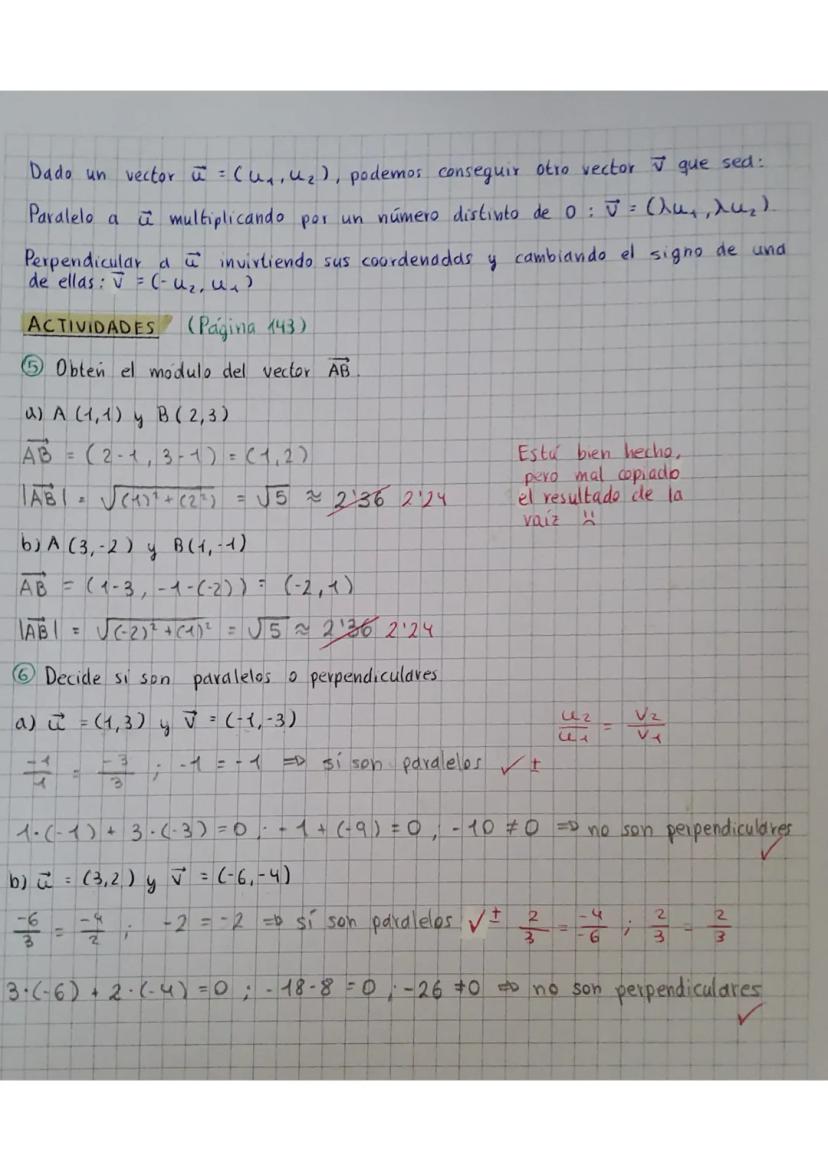 Dado un vector u⃗ = (u₁, u₂), podemos conseguir otro vector v⃗ que sea:
Paralelo a u⃗ multiplicando por un número distinto de 0: v⃗ = (λu₁, λu₂)
Perpendicular a u⃗ invirtiendo sus coordenadas y cambiando el signo de una
de ellas: v⃗ = (-u₂, u₁)
ACTIVIDADES (Página 143)
⑤ Obtén el módulo del vector AB⃗.
a) A (1,1) y B (2,3)
AB⃗ = (2-1, 3-1) = (1,2)
|AB⃗| = √(1)²+(2²) = √5 ≈ 2'36 2'24
Está bien hecho,
pero mal copiado
el resultado de la
raíz
b) A (3,-2) y B(1,-1)
AB⃗ = (1-3, -1-(-2)) = (-2,1)
|AB⃗| = √(-2)²+(1)² = √5 ≈ 2'36 2'24
⑥ Decide si son paralelos o perpendiculares
a) u⃗ = (1,3) y v⃗ = (-1,-3)
u₂/u₁ = v₂/v₁
-1/1 = -3/3 ; -1 = -1 ⇒ sí son paralelos ✓ ±
1·(-1) + 3·(-3) = 0 ; -1 + (-9) = 0 ; -10 ≠ 0 ⇒ no son perpendiculares ✓
b) u⃗ = (3,2) y v⃗ = (-6,-4)
-6/3 = -4/2 ; -2 = -2 ⇒ sí son paralelos ✓ ± 2/3 = -4/-6 ; 2/3 = 2/3
3·(-6) + 2·(-4) = 0 ; -18-8 = 0 ; -26 ≠ 0 ⇒ no son perpendiculares ✓